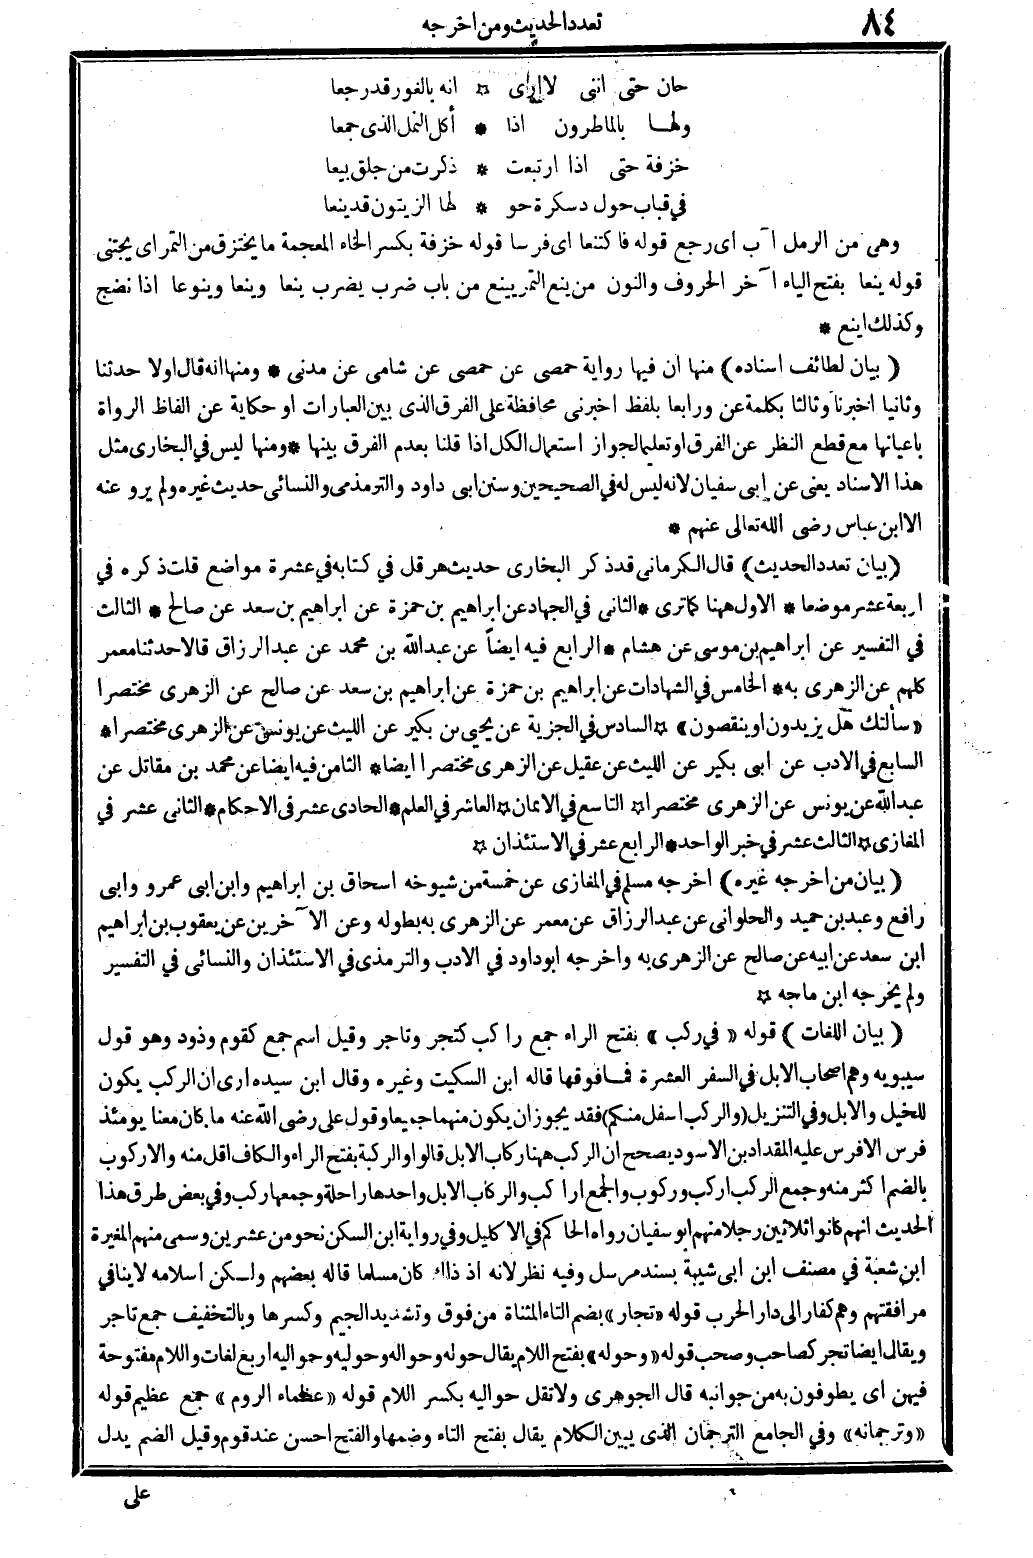 ٨٤
تعدد الحديث ومن اخرجه
حان حتى اننى لا ارى ☆ انه بالغور قد رجعا
ولهــا بالماطرون اذا * أكل النمل الذى جمعا
خزفة حتى اذا ارتبعت * ذكرت من جلق بيعا
في قباب حول دسكرة حو * لها الزيتون قد ينعا
وهى من الرمل آب اى رجع قوله فاكتنعا اى فرسا قوله خزفة بكسر الخاء المعجمة ما يختزق من التمر اى يجتنى
قوله ينعا بفتح الياء آخر الحروف والنون من ينع التمر يينع من باب ضرب يضرب ينعا وينعا وينوعا اذا نضج
وكذلك اينع *
( بيان لطائف اسناده ) منها ان فيها رواية حمصى عن حمصى عن شامى عن مدنى * ومنها انه قال اولا حدثنا
وثانيا اخبرنا وثالثا بكلمة عن ورابعا بلفظ اخبرنى محافظة على الفرق الذى بين العبارات او حكاية عن الفاظ الرواة
باعيانها مع قطع النظر عن الفرق او تعليما لجواز استعمال الكل اذا قلنا بعدم الفرق بينها * ومنها ليس في البخارى مثل
هذا الاسناد يعنى عن ابى سفيان لانه ليس له في الصحيحين وسنن ابى داود والترمذى والنسائى حديث غيره ولم يرو عنه
الا ابن عباس رضى الله تعالى عنهم *
( بيان تعدد الحديث ) قال الكرمانى قد ذكر البخارى حديث هرقل في كتابه في عشرة مواضع قلت ذكره في
اربعة عشر موضعا * الاول ههنا كما ترى * الثانى في الجهاد عن ابراهيم بن حمزة عن ابراهيم بن سعد عن صالح * الثالث
في التفسير عن ابراهيم بن موسى عن هشام * الرابع فيه ايضاً عن عبدالله بن محمد عن عبد الرزاق قالا حدثنا معمر
كلهم عن الزهرى به * الخامس في الشهادات عن ابراهيم بن حمزة عن ابراهيم بن سعد عن صالح عن الزهرى مختصرا
«سألتك هل يزيدون او ينقصون» ☆ السادس في الجزية عن يحيى بن بكير عن الليث عن يونس عن الزهرى مختصرا *
السابع في الادب عن ابى بكير عن الليث عن عقيل عن الزهرى مختصرا ايضا * الثامن فيه ايضا عن محمد بن مقاتل عن
عبدالله عن يونس عن الزهرى مختصرا ☆ التاسع في الايمان ☆ العاشر في العلم * الحادى عشر فى الاحكام * الثانى عشر في
المغازى ☆ الثالث عشر في خبر الواحد * الرابع عشر في الاستئذان ☆
( بيان من اخرجه غيره ) اخرجه مسلم في المغازى عن خمسة من شيوخه اسحاق بن ابراهيم وابن ابى عمرو وابى
رافع وعبد بن حميد والحلوانى عن عبد الرزاق عن معمر عن الزهرى به بطوله وعن الآخرين عن يعقوب بن ابراهيم
ابن سعد عن ابيه عن صالح عن الزهرى به واخرجه ابوداود في الادب والترمذى في الاستئذان والنسائى في التفسير
ولم يخرجه ابن ماجه ☆
( بيان اللغات ) قوله « في ركب » بفتح الراء جمع راكب كتجر وتاجر وقيل اسم جمع كقوم وذود وهو قول
سيبويه وهم اصحاب الابل في السفر العشرة فما فوقها قاله ابن السكيت وغيره وقال ابن سيده ارى ان الركب يكون
للخيل والابل وفي التنزيل (والركب اسفل منكم) فقد يجوز ان يكون منهما جميعا وقول على رضى الله عنه ما كان معنا يومئذ
فرس الا فرس عليه المقداد بن الاسود يصحح ان الركب ههنا ركاب الابل قالوا والركبة بفتح الراء والكاف اقل منه والاركوب
بالضم اكثر منه وجمع الركب اركب وركوب والجمع اراكب والركاب الابل واحدها راحلة وجمعها ركب وفي بعض طرق هذا
الحديث انهم كانوا ثلاثين رجلا منهم ابو سفيان رواه الحاكم في الاكليل وفي رواية ابن السكن نحو من عشرين وسمى منهم المغيرة
ابن شعبة في مصنف ابن ابى شيبة بسند مرسل وفيه نظر لانه اذ ذاك كان مسلما قاله بعضهم ولكن اسلامه لا ينافي
مرافقتهم وهم كفار الى دار الحرب قوله «تجار» بضم التاء المثناة من فوق وتشديد الجيم وكسرها وبالتخفيف جمع تاجر
ويقال ايضا تجر كصاحب وصحب قوله «وحوله» بفتح اللام يقال حوله وحواله وحوليه وحواليه اربع لغات واللام مفتوحة
فيهن اى يطوفون به من جوانبه قال الجوهرى ولا تقل حواليه بكسر اللام قوله «عظماء الروم» جمع عظيم قوله
«وترجمانه» وفي الجامع الترجمان الذى يبين الكلام يقال بفتح التاء وضمها والفتح احسن عند قوم وقيل الضم يدل
على